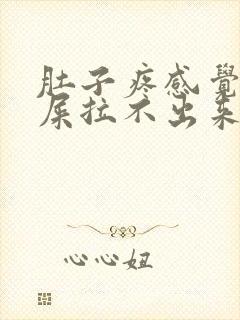 肚子疼感覺
屎拉不出來
心心妞